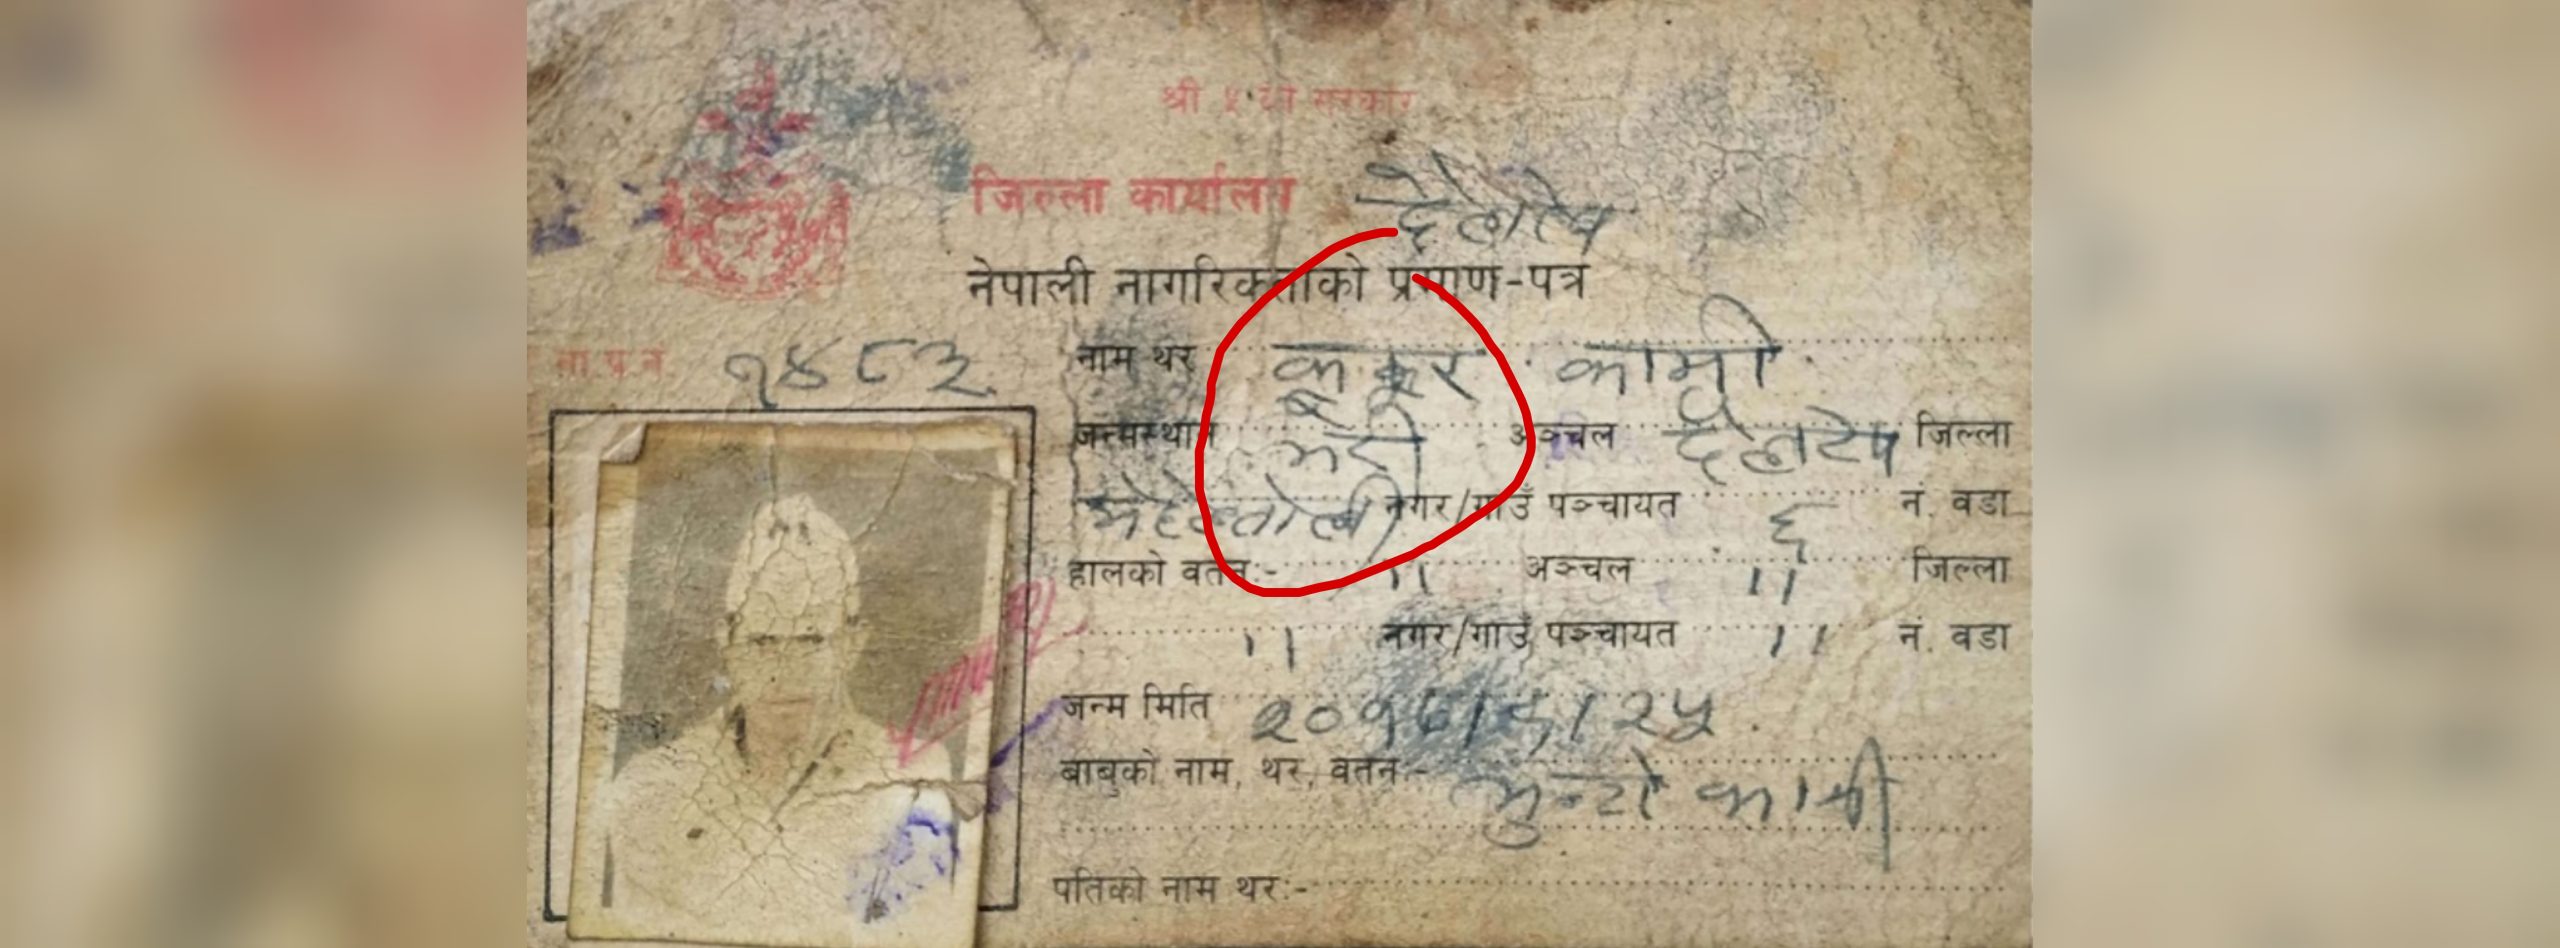 श्री ५ को सरकार
जिल्ला कार्यालय दैलेख
नेपाली नागरिकताको प्रमाण-पत्र
ना.प.नं. १४८३
नाम थर कुकुर कामी
जन्मस्थान भेरी अञ्चल दैलेख जिल्ला
नगर/गाउँ पञ्चायत ६ नं. वडा
हालको वतन:- ,, अञ्चल ,, जिल्ला
,, नगर/गाउँ पञ्चायत ,, नं. वडा
जन्म मिति
बाबुको नाम, थर, वतन:- कामी
पतिको नाम थर:-